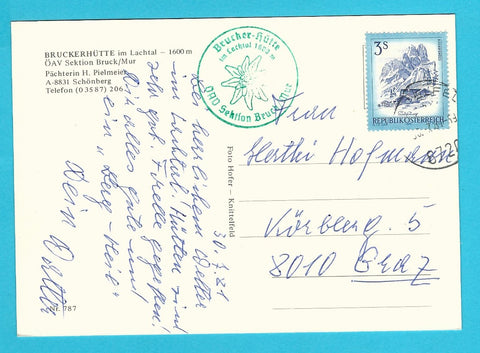 BRUCKERHÜTTE im Lachtal – 1600 m
ÖAV Sektion Bruck/Mur
Pächterin H. Pielmeier
A-8831 Schönberg
Telefon (0 35 87) 206
Brucker-Hütte
im Lachtal 1600 m
ÖAV Sektion Bruck/Mur
3 S
REPUBLIK ÖSTERREICH
8720
Bei herrlichem Wetter
im Lachtal. Hütten sind
sehr gut. Forelle gegessen!
Dir alles Gute und
ein "Berg-Heil"
Dein
30.7.81
Foto Hofer – Knittelfeld
Frau
Herthi Hofmann
Körblerg. 5
8010 Graz
Nr. 787